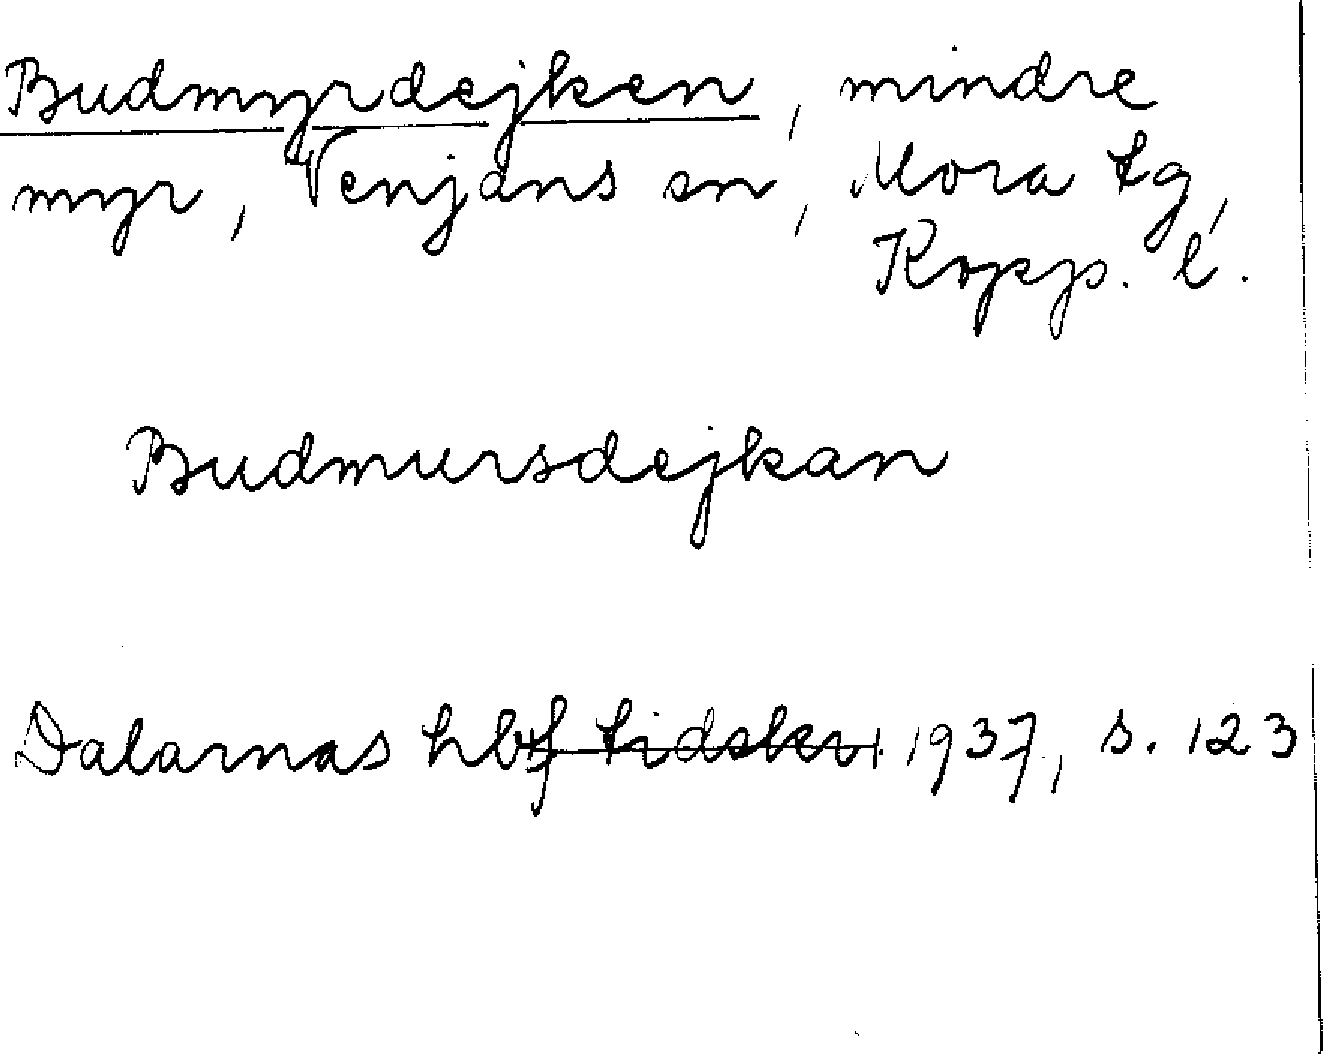 Budmyrdejken, mindre
myr, Venjans sn, Mora tg,
Kopp. l.
Budmursdejkan
Dalarnas hbf tidskr. 1937, s. 123